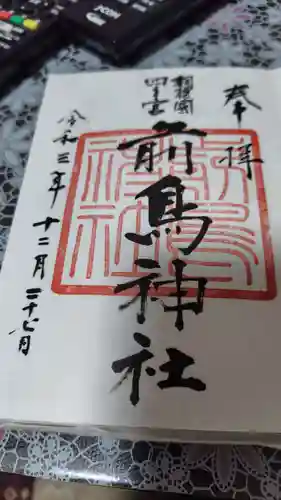 奉拝
相模国
四之宮
前鳥神社
令和三年十二月二十七日